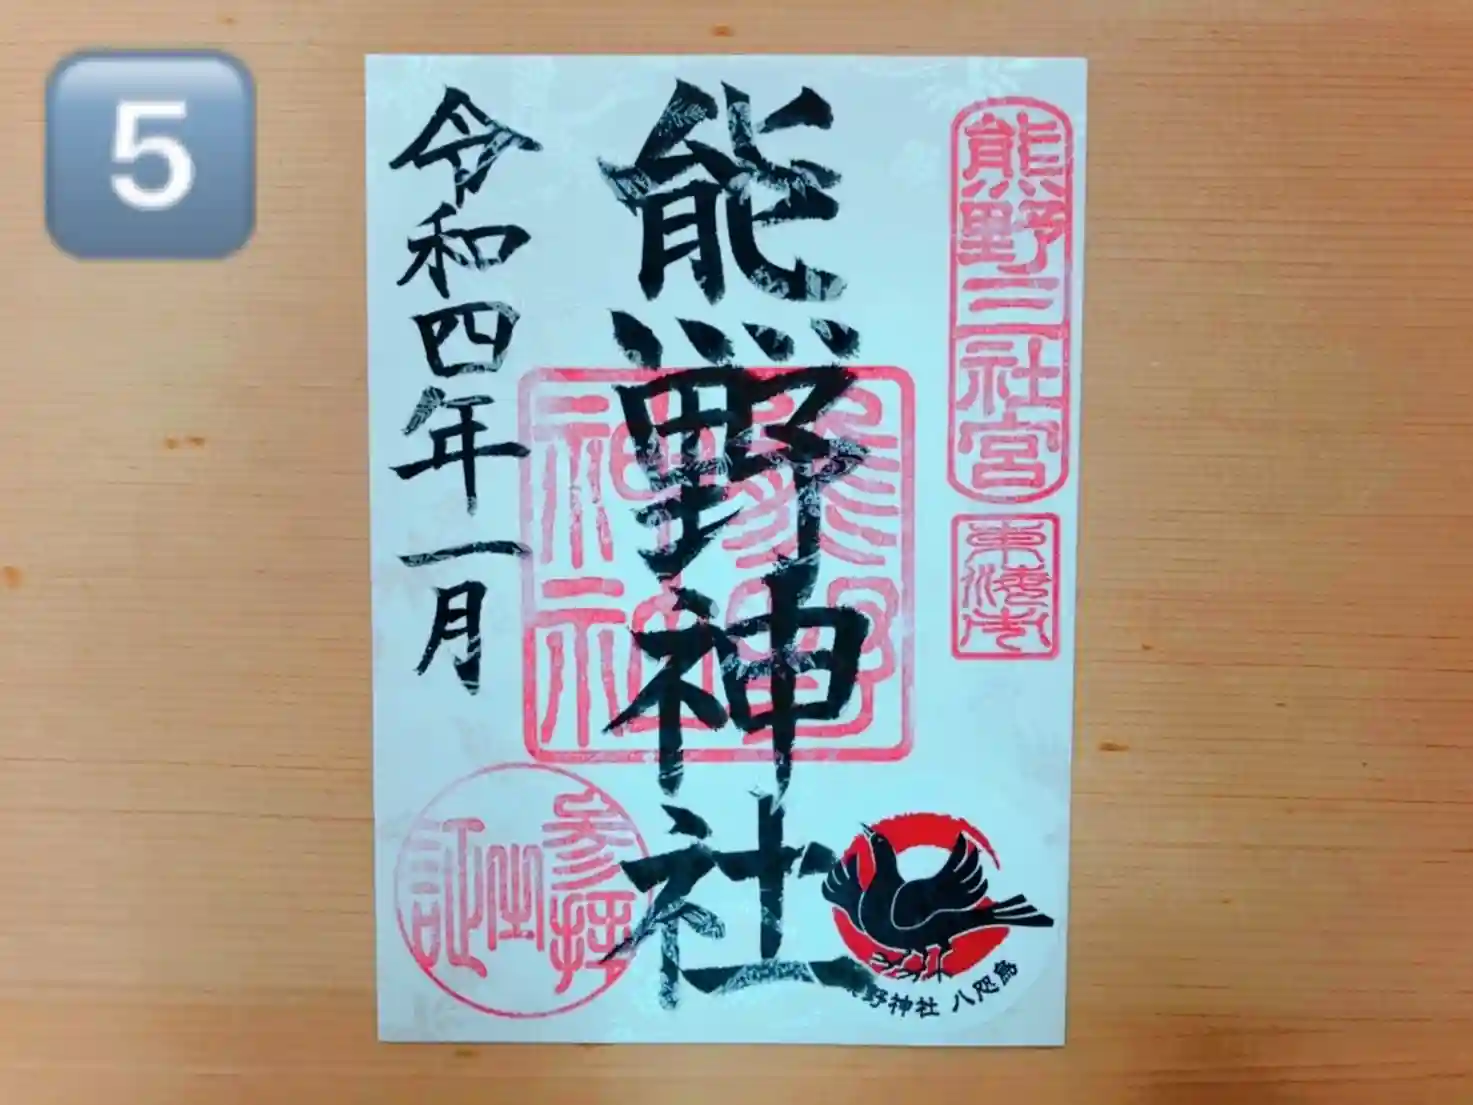 5
熊野三社宮
東海市
熊野神社
熊野神社
令和四年一月
参拝
之
証
野神社 八咫烏